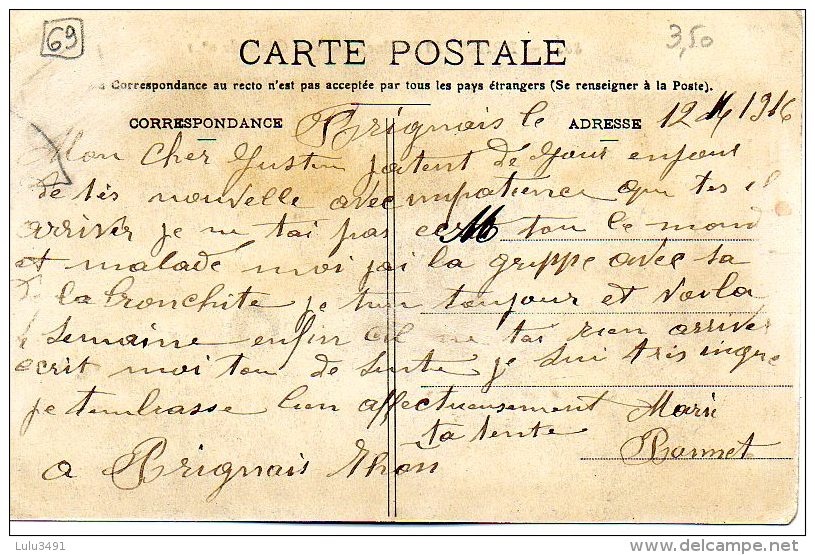 69
3,50
CARTE POSTALE
Correspondance au recto n'est pas acceptée par tous les pays étrangers (Se renseigner à la Poste).
CORRESPONDANCE
ADRESSE
Brignais le 12 M 1916
Mon cher Justin jatent de jour enjour
de tes nouvelle avec impatience que tes il
arriver je ne tai pas ecri tou le mond
et malade moi jai la grippe avec sa
de la bronchite je tou toujour et voila
semaine enfin cil ne tai rien arriver
ecrit moi tou de suite je sui tris inque
je tembrasse bien affectueusement Marie
ta tente
a Brignais Rhon
Lulu3491
www.delcampe.net